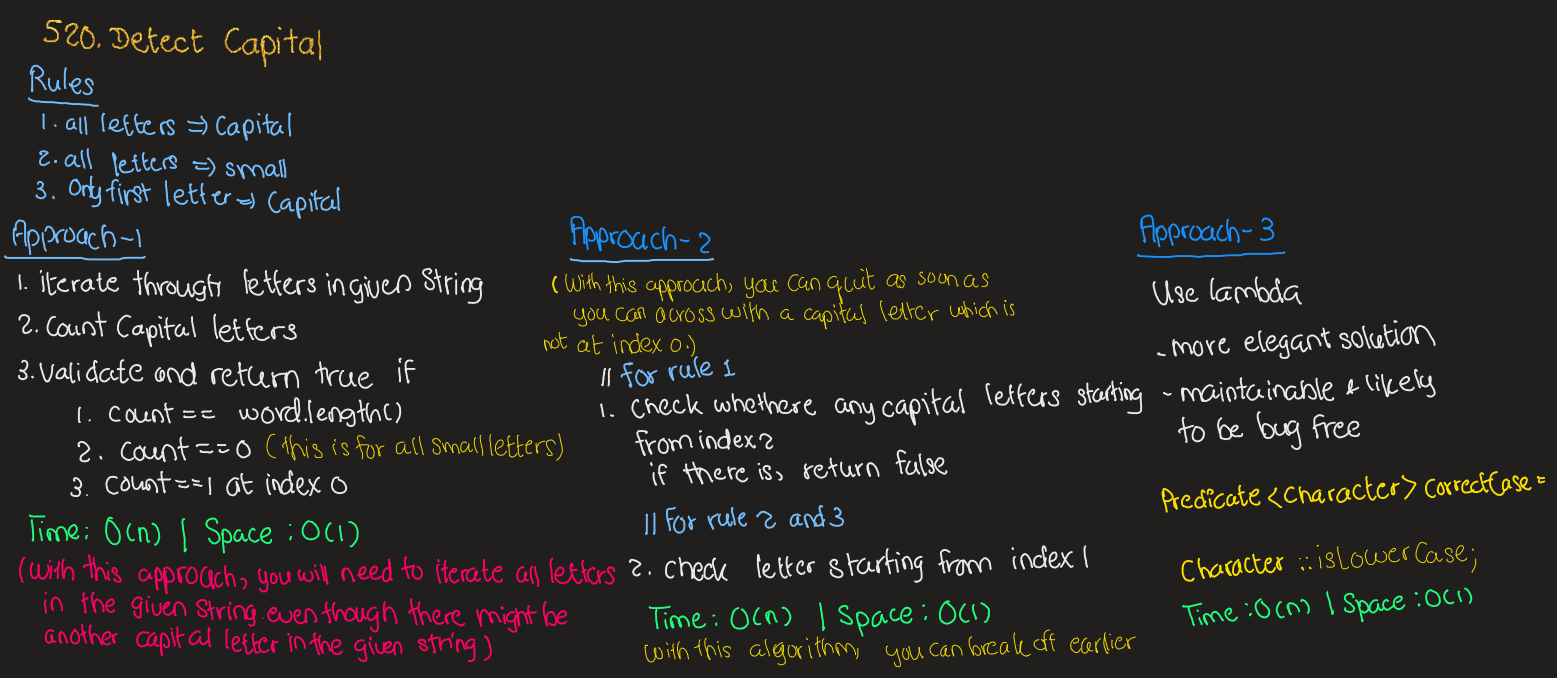 520. Detect Capital
Rules
1. all letters => Capital
2. all letters => small
3. Only first letter => Capital
Approach-1
1. iterate through letters in given String
2. Count Capital letters
3. Validate and return true if
1. count == word.length()
2. count == 0 (this is for all small letters)
3. count == 1 at index 0
Time: O(n) | Space: O(1)
(with this approach, you will need to iterate all letters
in the given string even though there might be
another capital letter in the given string)
Approach-2
(With this approach, you can quit as soon as
you can across with a capital letter which is
not at index 0.)
// for rule 1
1. Check whethere any capital letters starting
from index 2
if there is, return false
// For rule 2 and 3
2. check letter starting from index 1
Time: O(n) | Space: O(1)
(with this algorithm, you can break off earlier
Approach-3
Use lambda
- more elegant solution
- maintainable & likely
to be bug free
Predicate<Character> correctCase =
Character::isLowerCase;
Time: O(n) | Space: O(1)